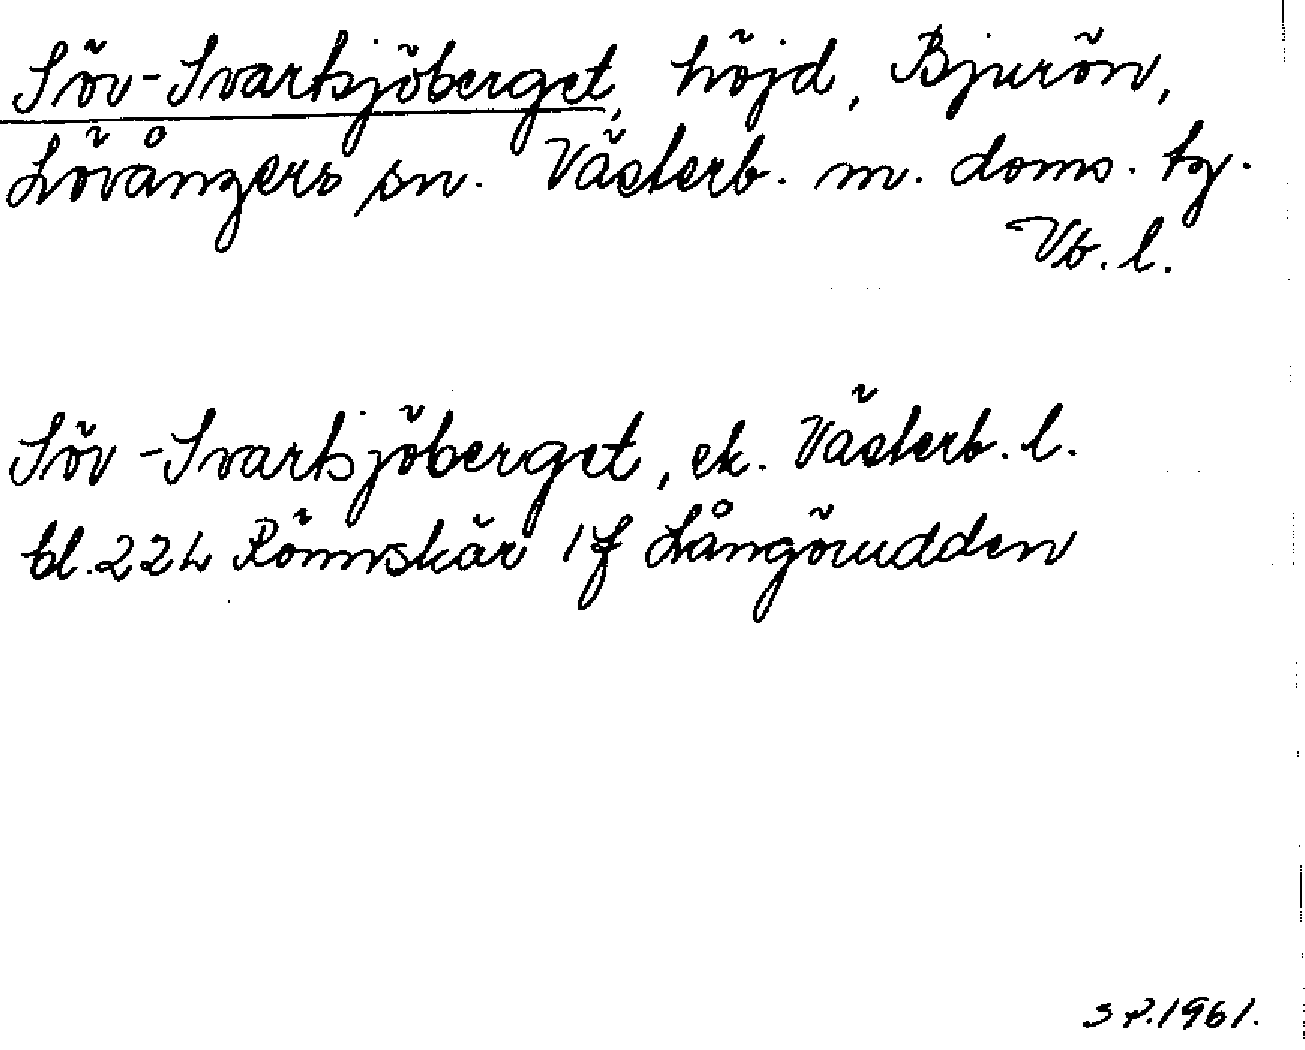 Söv-Svartsjöberget, höjd, Bjurön,
Lövångers sn. Västerb. m. doms. tg.
Vb. l.
Söv-Svartsjöberget, ek. Västerb. l.
bl. 224 Rönnskär 1f Långörudden
SP. 1961.